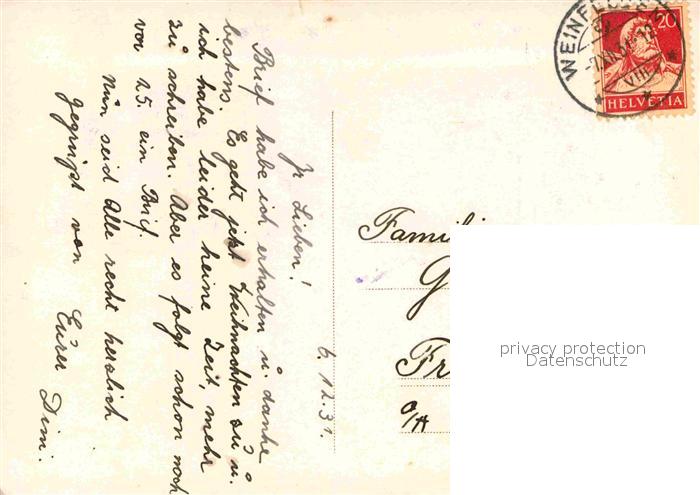 6.12.31.
Ihr Lieben!
Brief habe ich erhalten u. danke
bestens. Es geht jetzt Weihnachten zu u.
ich habe leider keine Zeit, mehr
zu schreiben. Aber es folgt schon noch
vor 25. ein Brief.
Nun seid Alle recht herzlich
gegrüßt von Eurer Dimi.
Familie
G
Fr
a/A
WEINFELDEN
VIII
20
HELVETIA
privacy protection
Datenschutz